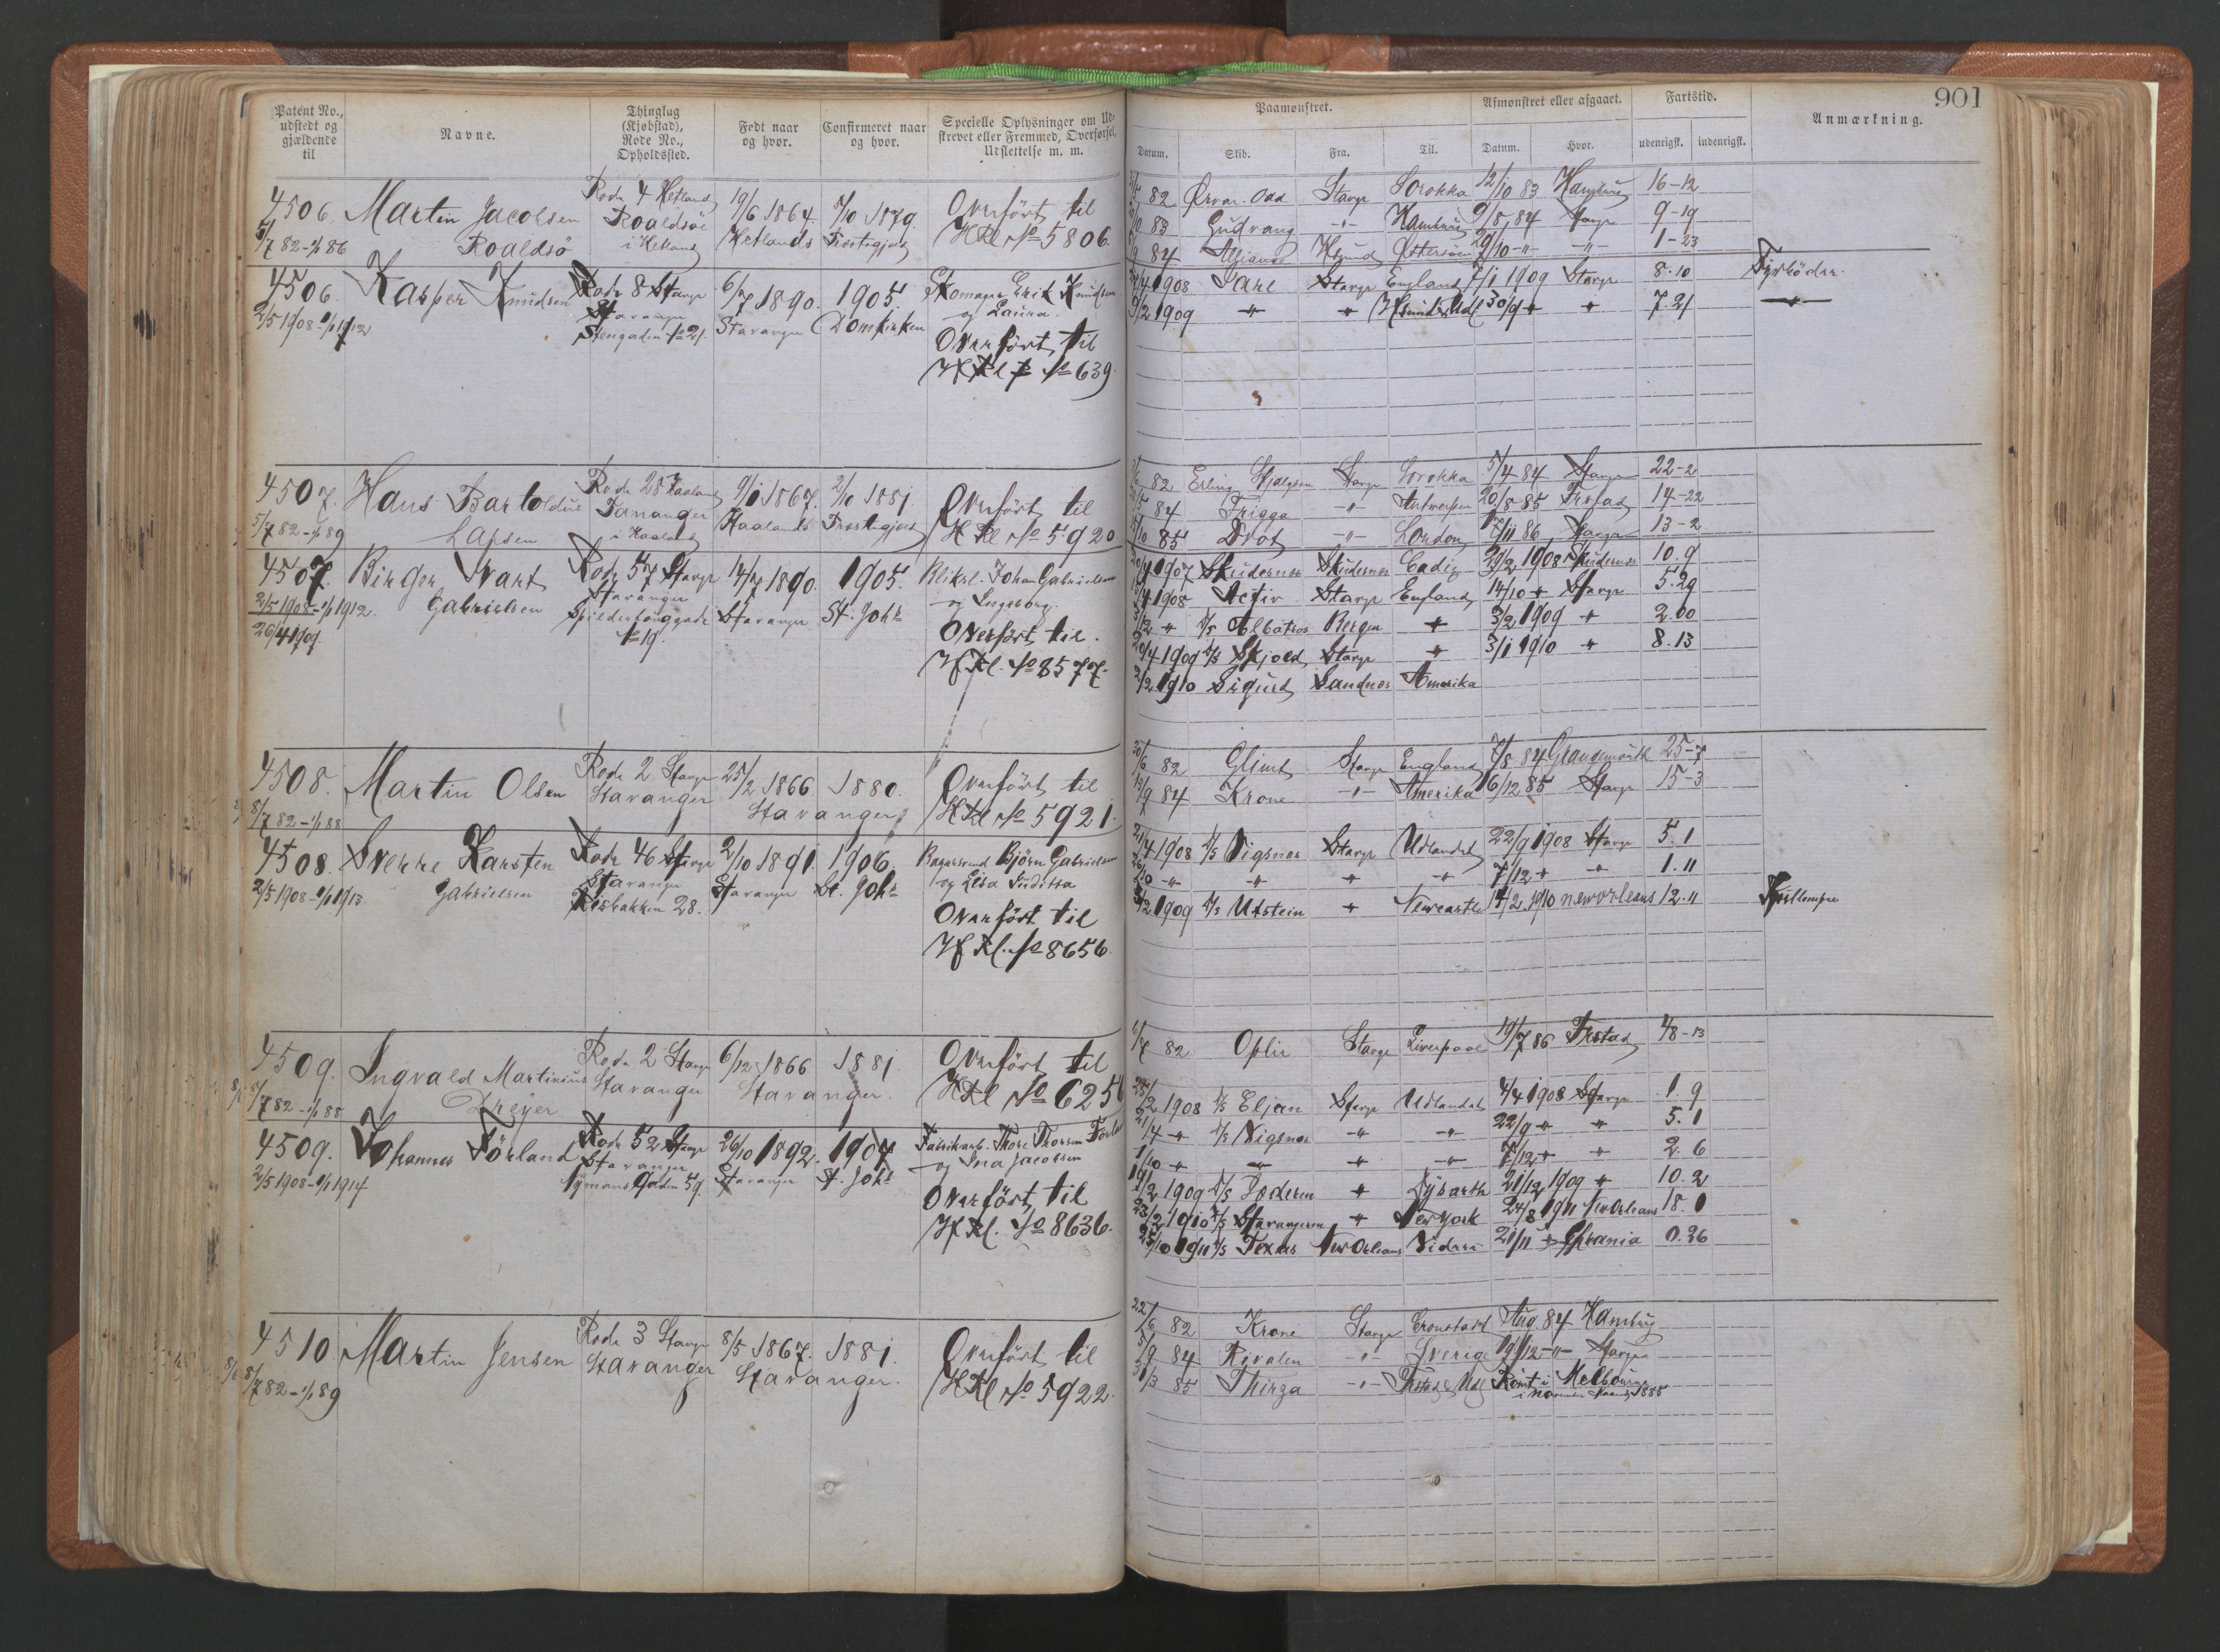 901
Patent No., udstedt og gjældende til
Navne.
Thinglag (Kjøbstad), Rode No., Opholdssted.
Født naar og hvor.
Confirmeret naar og hvor.
Specielle Oplysninger om Udskrevet eller Fremmed, Overførsel, Udslettelse m. m.
Paamønstret.
Afmønstret eller afgaaet.
Fartstid.
Anmærkning.
Datum. Skib. Fra. Til. Datum. Hvor. udenrigsk. indenrigsk.
4506. Martin Jacobsen Rode 4 Hetland 19/6 1864. 7/10 1879. Overført til
5/7 82-1/1 86 Roaldsö Roaldsöe i Hetland Hetlands Præstegjæld HKl No 5806
82 Ørvar-Odd Stavgr Sorokka 12/10 83 Hamburg 16-12
83 Gudvang -"- Hamburg 9/8 84 Stavgr 9-19
84 Alliance Hsund Østersöen 29/10 -"- -"- 1-23
4506. Kasper Knudsen Rode 8 Stavgr 6/7 1890. 1905. Skomager Erik Knudsen
2/5 1908-1/1 1912 Stavanger Stavanger Domkirken og Laura.
Stengaden No 21.
Overført til
HKl 7 No 639
1908 Jarl Stavgr England 7/1 1909 Stavgr 8.10 Fyrböder.
1909 -"- " Hsund & Udl 30/9 " " 7 21 -"-
4507. Hans Bartoldus Rode 28 Haaland 9/1 1867. 2/10 1881. Overført til
5/7 82-1/1 89 Larsen Tananger i Haaland Haalands Præstegjæld HKl No 5920
82 Erling Skjalgson Stavgr Sorokka 5/4 84 Stavgr 22-2
84 Frigga -"- Antwerpen 20/8 85 Frstad 14-22
85 Drot -"- London 17/11 86 Stavgr 13-2
4507. Birger Svart Rode 57 Stavgr 14/7 1890. 1905. Bliksl. Johan Gabrielsen
2/5 1908-1/1 1912. Gabrielsen Stavanger Stavanger St. Johs og Ingeborg.
26/4 1909. No 19.
Overført til.
HKl. No 8577.
1907 Skudernes Skudernes Cadiz 29/2 1908 Skudernes 10.9
1908 Activ Stavgr England 14/10 " Stavgr 5.29
3/12 " D/S Albatros Bergen " 3/2 1909 " 2.00
20/4 1909 D/S Skjold Stavgr " 3/1 1910 " 8.13
2/2 1910 Sigurd Sandnes Amerika
4508. Martin Olsen Rode 2 Stavgr 25/2 1866. 1880. Overført til
8/7 82-1/1 88 Stavanger Stavanger HKl No 5921.
30/6 82 Glimt Stavgr England 7/8 84 Grangemouth 25-7
13/9 84 Krone -"- Amerika 16/12 85 Stavgr 15-3
4508. Sverre Karsten Rode 46 Stavgr 2/10 1891. 1906. Bagersvend Björn Gabrielsen
2/5 1908-1/1 1913. Gabrielsen Stavanger Stavanger St. Johs og Lisa Juditta
28.
Overført til
HKl. No 8656.
21/4 1908 D/S Vigsnes Stavgr Udlandet 22/9 1908 Stavgr 5.1
" " " 7/12 " " 1.11
1909 D/S Utstein " Newcastle 14/2 1910 neworleans 12.11
4509. Ingvald Martinius Rode 2 Stavgr 6/12 1866 1881. Overført til
8/7 82-1/1 88 Dreyer Stavanger Stavanger. HKl No 625
6/7 82 Ophir Stavgr Liverpool 19/7 86 Frstad 48-13
4509. Johannes Förland Rode 52 Stavgr 26/10 1892. 1907 Fabrikarb. Thore Thorsen Förland
2/5 1908-1/1 1914 Stavanger Stavanger St. Johs og Ina Jacobsen
Nymansgaden 59.
Overført til
HKl. No 8636.
25/2 1908 D/S Eljan Stavgr Udlandet 4/4 1908 Stavgr 1.9
21/4 " D/S Vigsnes " " 22/9 " " 5.1
1/10 " " " " 7/12 " " 2.6
19/2 1909 D/S Soderen " Dysarth 21/12 1909 " 10.2
23/2 1910 D/S Stavangeren " New York 24/8 1911 NewOrleans 18.0
25/10 1911 D/S Texas NewOrleans 21/11 " Chrania 0.26
4510. Martin Jensen Rode 3 Stavgr 8/5 1867. 1881. Overført til
8/7 82-1/1 89 Stavanger Stavanger. HKl No 5922.
22/6 82 Krone Stavgr Cronstadt Aug. 84 Hamburg
5/9 84 Rivalen -"- Sverige 19/12 -"- Stavgr
31/3 85 Thirza -"- Frstad & Udl Römt i Melbourne
i November 1885